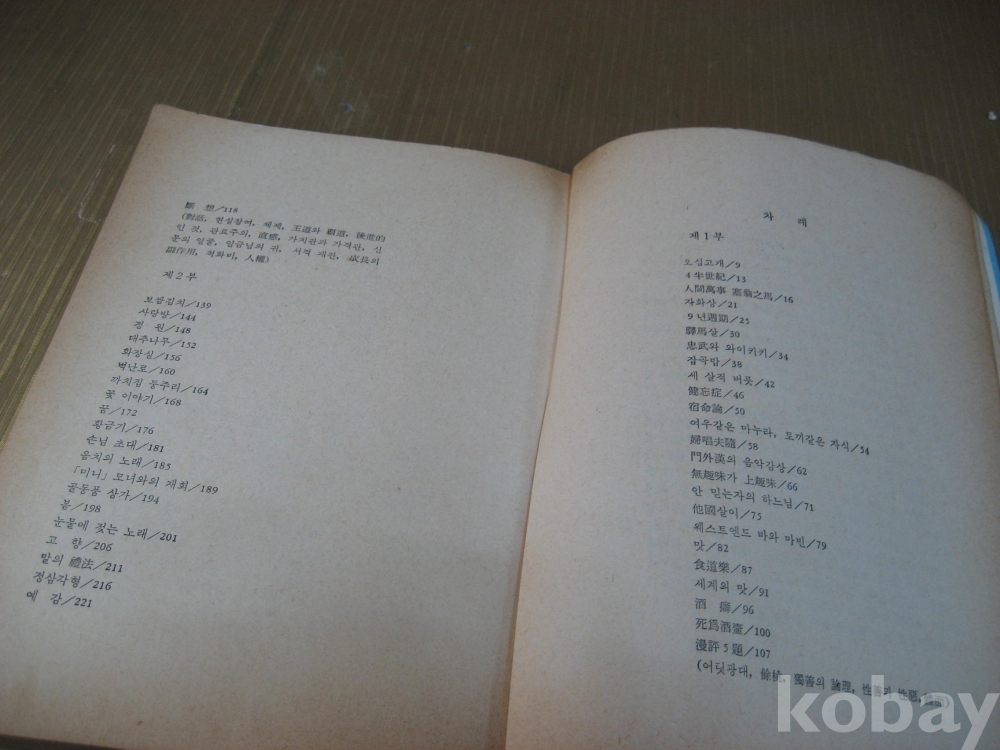 斷 想/118
(對話, 현실참여, 체제, 王道와 覇道, 後進的
인 것, 관료주의, 直感, 가치관과 가격관, 신
문의 얼굴, 임금님의 귀, 서적 재판, 
副作用, 척화비, 人權)
제2부
보쌈김치/139
사랑방/144
정 원/148
대추나무/152
화장실/156
벽난로/160
까치집 둥주리/164
꽃 이야기/168
꿈/172
황금기/176
손님 초대/181
음치의 노래/185
「미니」모녀와의 재회/189
골동품 상가/194
봄/198
눈물에 젖는 노래/201
고 향/206
말의 禮法/211
정삼각형/216
예 감/221
차 례
제1부
오십고개/9
4半世紀/13
人間萬事 塞翁之馬/16
자화상/21
9년週期/25
驛馬살/30
忠武와 와이키키/34
잡곡밥/38
세 살적 버릇/42
健忘症/46
宿命論/50
여우같은 마누라, 토끼같은 자식/54
婦唱夫隨/58
門外漢의 음악감상/62
無趣味가 上趣味/66
안 믿는자의 하느님/71
他國살이/75
웨스트엔드 바와 마빈/79
맛/82
食道樂/87
세계의 맛/91
酒 癖/96
死爲酒壺/100
漫評5題/107
(어릿광대, 餘桃, 獨善의 論理, 性善과 性惡,
kobay